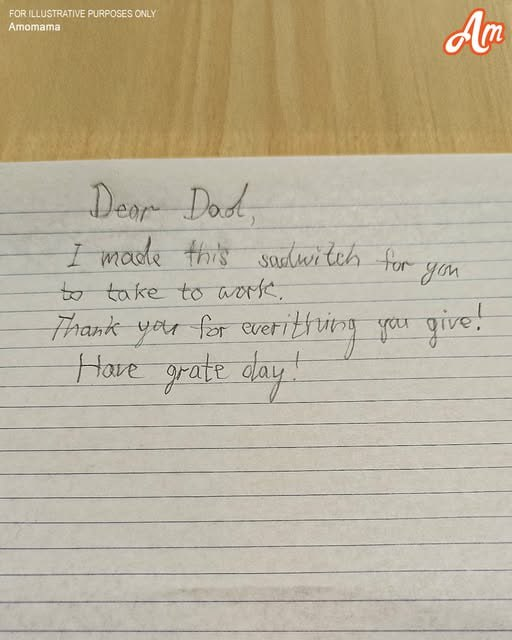 FOR ILLUSTRATIVE PURPOSES ONLY
Amomama
Am
Dear Dad,
I made this sadwitch for you
to take to work.
Thank you for everithhing you give!
Have grate day!